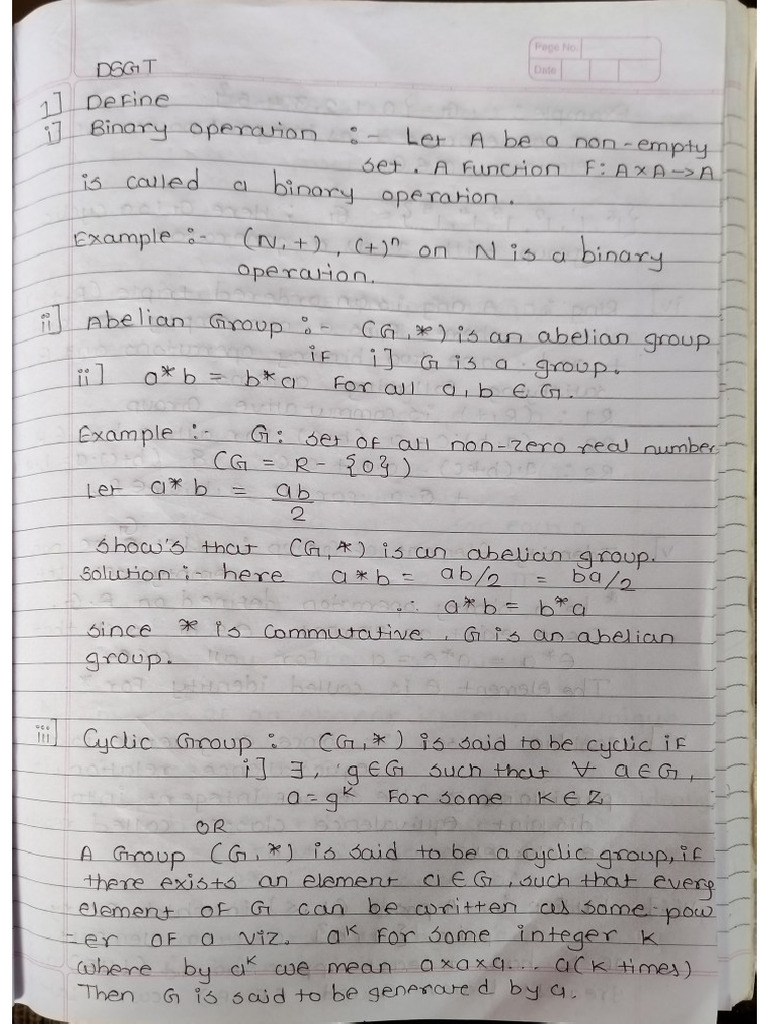 Page No.
Date
DSGT
1] Define
i] Binary operation :- Let A be a non-empty
set. A Function F: A×A→A
is called a binary operation.
Example :- (N,+), (+)ⁿ on N is a binary
operation.
ii] Abelian Group :- (G,*) is an abelian group
if i] G is a group.
ii] a*b = b*a For all a,b ∈ G.
Example :- G: set of all non-zero real number
(G = R - {0})
Let a*b = ab/2
Show's that (G,*) is an abelian group.
Solution :- here a*b = ab/2 = ba/2
∴ a*b = b*a
since * is commutative, G is an abelian
group.
iii] Cyclic Group : (G,*) is said to be cyclic if
i] ∃, g∈G such that ∀ a∈G,
a = gᵏ For some k∈Z
OR
A Group (G,*) is said to be a cyclic group, if
there exists an element a∈G, such that every
element of G can be written as some pow
-er of a viz. aᵏ for some integer k
where by aᵏ we mean a×a×a... a(k times)
Then G is said to be generated by a.